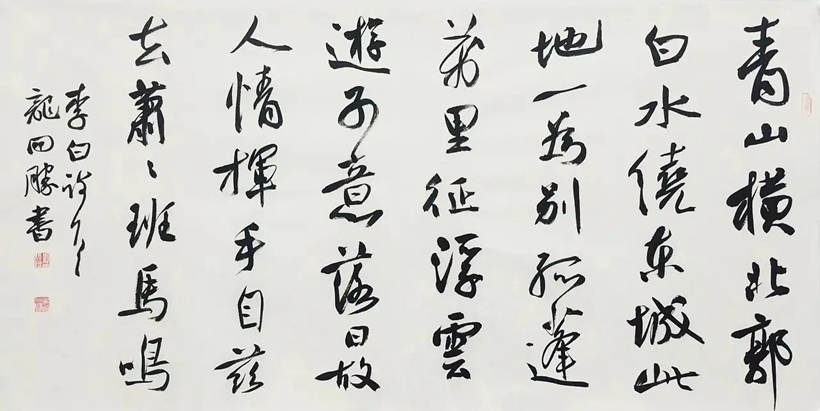 青山橫北郭
白水繞東城此
地一為別孤蓬
萬里征浮雲
遊子意落日故
人情揮手自茲
去蕭〻班馬鳴
李白詩
龍勝書